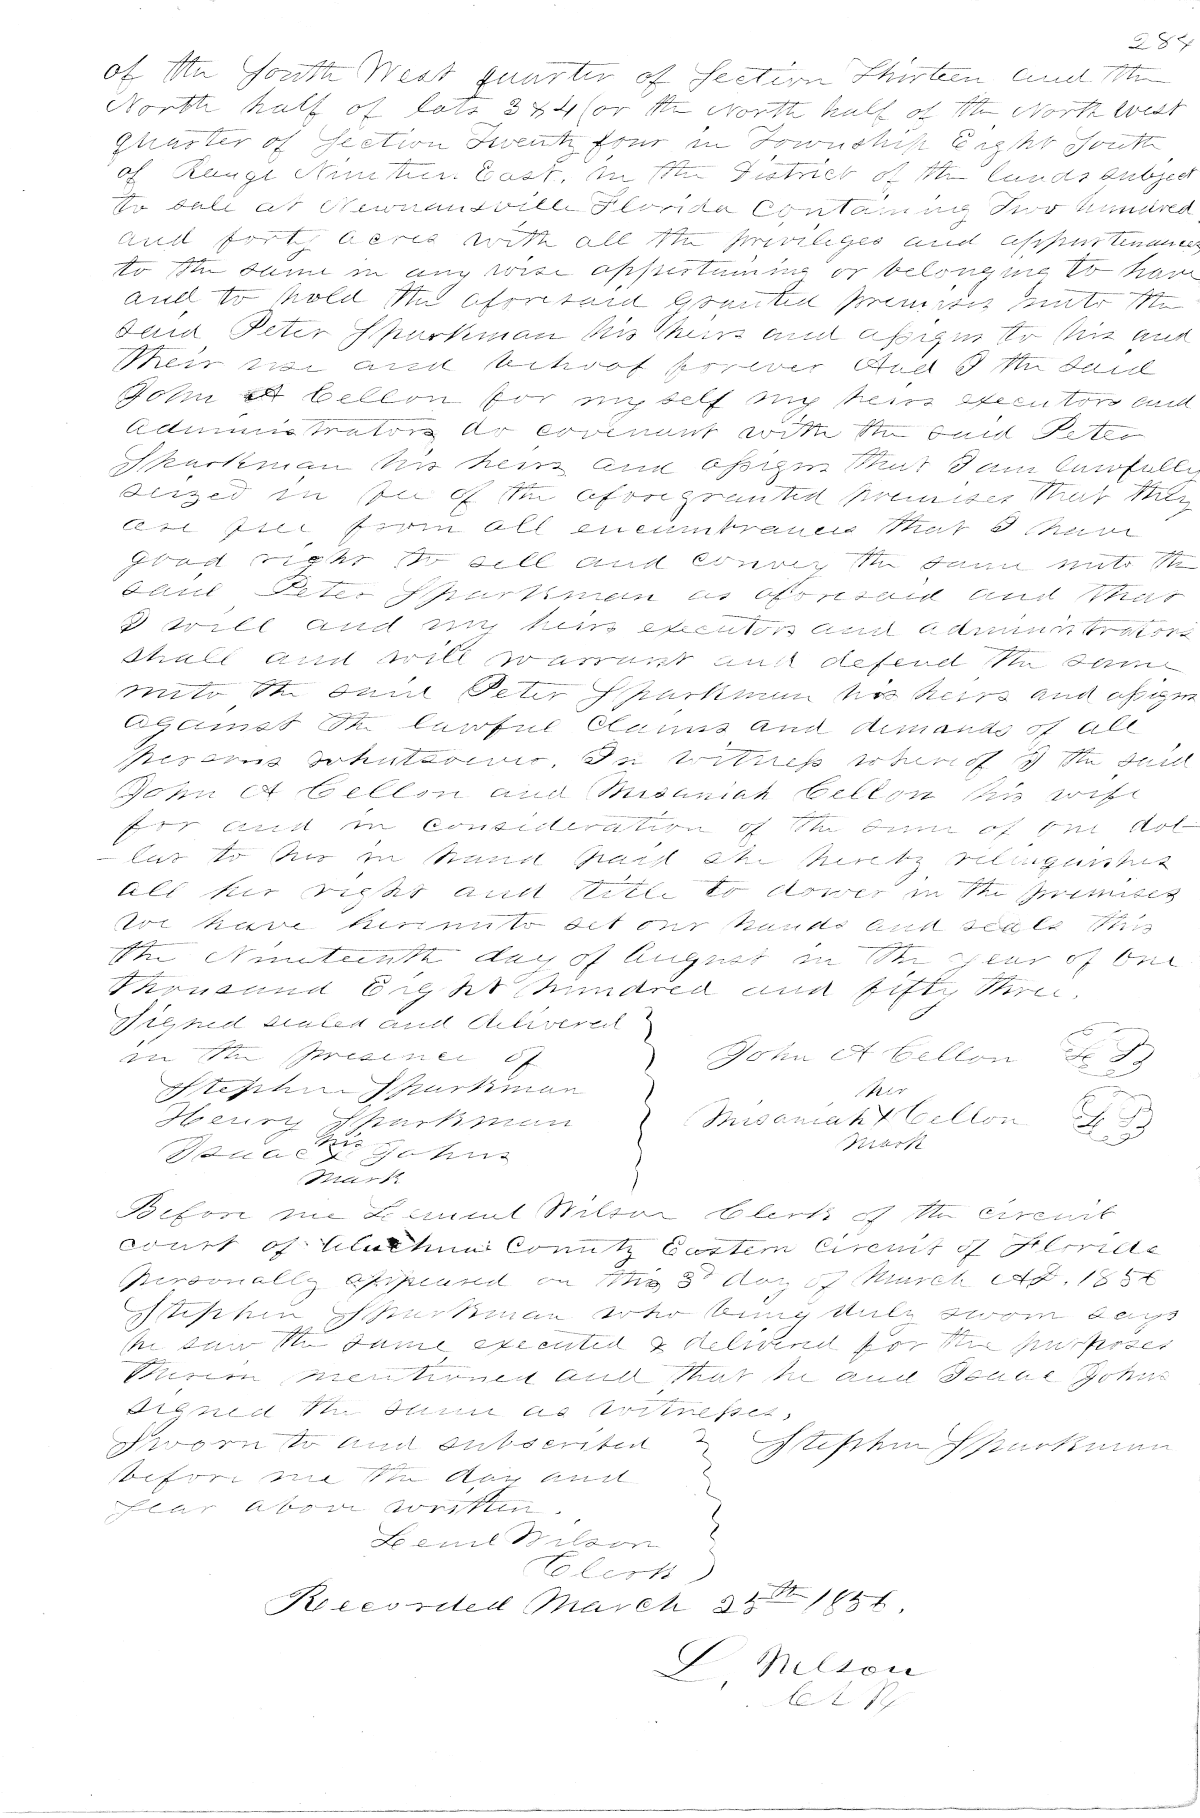 284
of the South West quarter of Section Thirteen and the
North half of lots 3 & 4 (or the North half of the North west
quarter of Section Twenty four in Township Eight South
of Range Nineteen East. in the District of the lands subject
to sale at Newnansville Florida Containing Two hundred
and forty acres with all the privileges and appurtenances
to the same in any wise appertaining or belonging to have
and to hold the aforesaid granted premises unto the
said Peter Sparkman his heirs and assigns to his and
their use and behoof forever And I the said
John A Cellon for myself my heirs executors and
Administrators do covenant with the said Peter
Sparkman his heirs and assigns that I am lawfully
seized in fee of the aforegranted premises that they
are free from all encumbrances that I have
good right to sell and convey the same unto the
said Peter Sparkman as aforesaid and that
I will and my heirs executors and administrators
shall and will warrant and defend the same
unto the said Peter Sparkman his heirs and assigns
against the lawful Claims and demands of all
persons whatsoever. In witness whereof I the said
John A Cellon and Misaniah Cellon his wife
for and in consideration of the sum of one dol-
-lar to her in hand paid she hereby relinquishes
all her right and title to dower in the premises
we have hereunto set our hands and seals this
the Nineteenth day of August in the year of One
thousand Eight hundred and fifty three.
Signed sealed and delivered
in the presence of John A Cellon L S
Stephen Sparkman her
Henry Sparkman Misaniah X Cellon L S
his mark
Isaac X Johns
mark
Before me Lemuel Wilson Clerk of the circuit
court of Alachua County Eastern Circuit of Florida
personally appeared on this 3d day of March AD. 1856
Stephen Sparkman who being duly sworn says
he saw the same executed & delivered for the purposes
therein mentioned and that he and Isaac Johns
signed the same as witnesses.
Sworn to and subscribed Stephen Sparkman
before me the day and
year above written.
Leml Wilson
Clerk
Recorded March 25th 1856.
L. Wilson
Clk